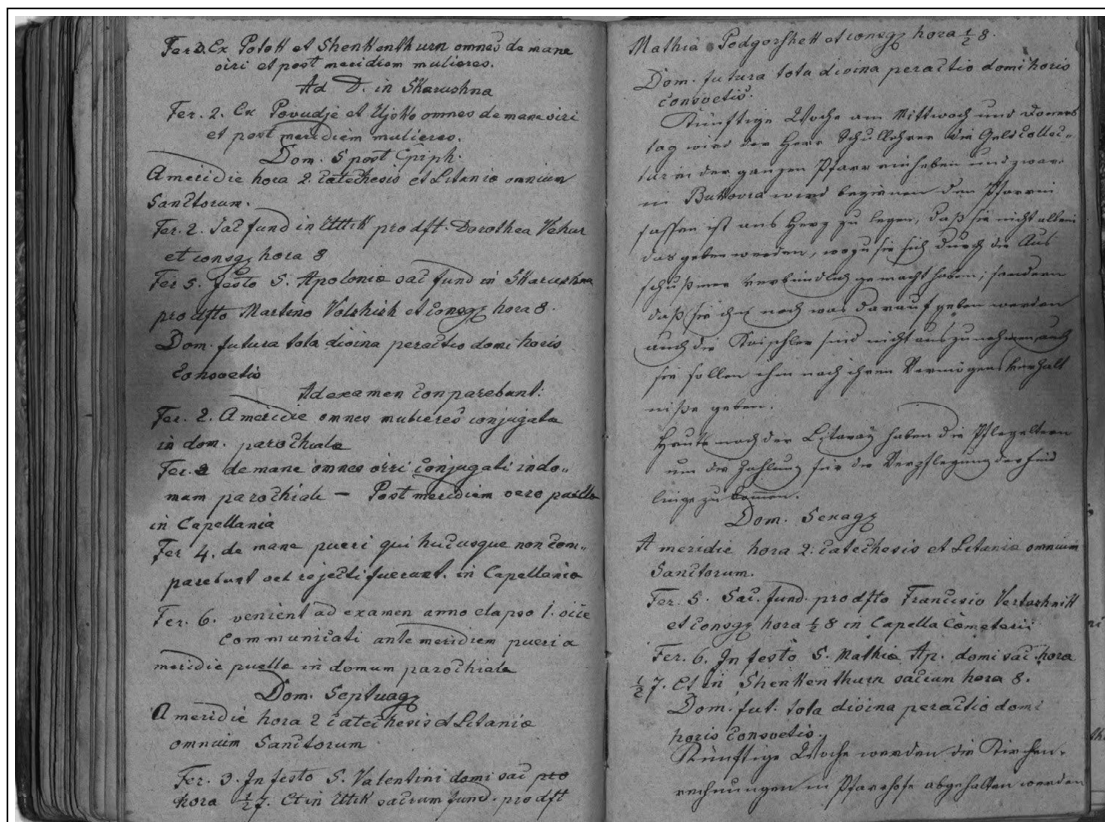 Fer 2. Ex Polott et Shenkenthurn omnes de mane
viri et post meridiem mulieres.
Ad D. in Skarushna
Fer. 2. Ex Povudje et Ujsko omnes de mane viri
et post meridiem mulieres.
Dom. 5 post Epiph.
A meridie hora 2. catechesis et Litaniæ omnium
Sanctorum.
Fer. 2. Sac fund in Uttik pro dft. Dorothea Vehur
et consgz hora 8
Fer 5. festo S. Apoloniæ sac fund in Skarushna
pro dfto Marteno Volshish et consgz hora 8.
Dom. futura tota divina peractio domi horis
Consvetis
Ad examen comparebunt:
Fer. 2. A meridie omnes mulieres conjugatæ
in dom. parochiale
Fer. 3 de mane omnes viri conjugati in do-
mum parochiale — Post meridiem vero puellæ
in Capellania
Fer 4. de mane pueri qui hucusque non com-
parebunt vel rejecti fuerant. in Capellania
Fer. 6. venient ad examen anno elapso 1. vice
communicati ante meridiem pueri a
meridie puellæ in domum parochiale
Dom. Septuagz
A meridie hora 2 catechesis et Litaniæ
omnium Sanctorum
Fer. 3. In festo S. Valentini domi sac pro
hora ½7. Et in Uttik sacrum fund. pro dft
Mathia Podgorshek et consgz hora ½ 8.
Dom. futura tota divina peractio domi horis
consvetis.
Künftige Woche am Mittwoch und Donners
tag wird der Herr Schullehrer die Geldcollec-
tur in der ganzen Pfarr einheben und zwar
in Bukovza wird beginnen den Pfarrin
sassen ist ans Herz zu legen, daß sie nicht allein
das geben werden, wozu sie sich durch die Aus
schußmer verbindlich gemacht haben; sondern
daß sie ihm noch was darauf geben werden
auch die Keischler sind nicht auszunehmen auch
sie sollen ihm nach ihrem Vermögens Verhält
niße geben.
Heute nach der Litaney haben die Pflegältern
um die Zahlung für die Verpflegung der Find
linge zu kommen.
Dom. Sexagz
A meridie hora 2. catechesis et Litaniæ omnium
Sanctorum.
Fer. 5. Sac. fund. pro dfto Francisco Vertashnik
et consgz hora ½ 8 in Capella Cæmeterii
Fer. 6. In festo S. Mathiæ Ap. domi sac hora
½ 7. Et in Shenkenthurn sacrum hora 8.
Dom. fut. tota divina peractio domi
horis consvetis.
Künftige Woche werden die Kirchen-
rechnungen in Pfarrhofe abgehalten werden